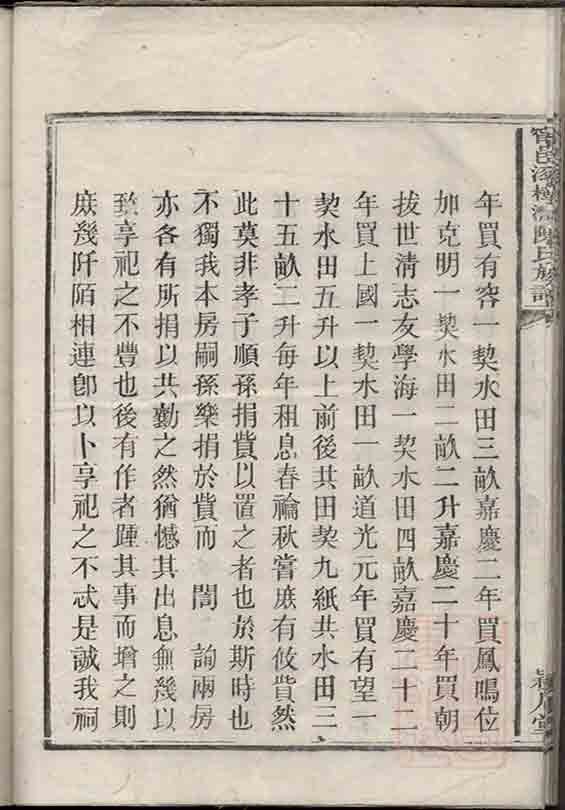 年買有容一契水田三畝嘉慶二年買鳳鳴位
加克明一契水田二畝二升嘉慶二十年買朝
拔世清志友學海一契水田四畝嘉慶二十二
年買上國一契水田一畝道光元年買有望一
契水田五升以上前後共田契九紙共水田三
十五畝二升每年租息春禴秋嘗庶有攸貲然
此莫非孝子順孫捐貲以置之者也於斯時也
不獨我本房嗣孫樂捐於貲而 誾 詢兩房
亦各有所捐以共勷之然猶憾其出息無幾以
致享祀之不豐也後有作者踵其事而增之則
庶幾阡陌相連卽以卜享祀之不忒是誠我祠
陳氏族譜
潁川堂